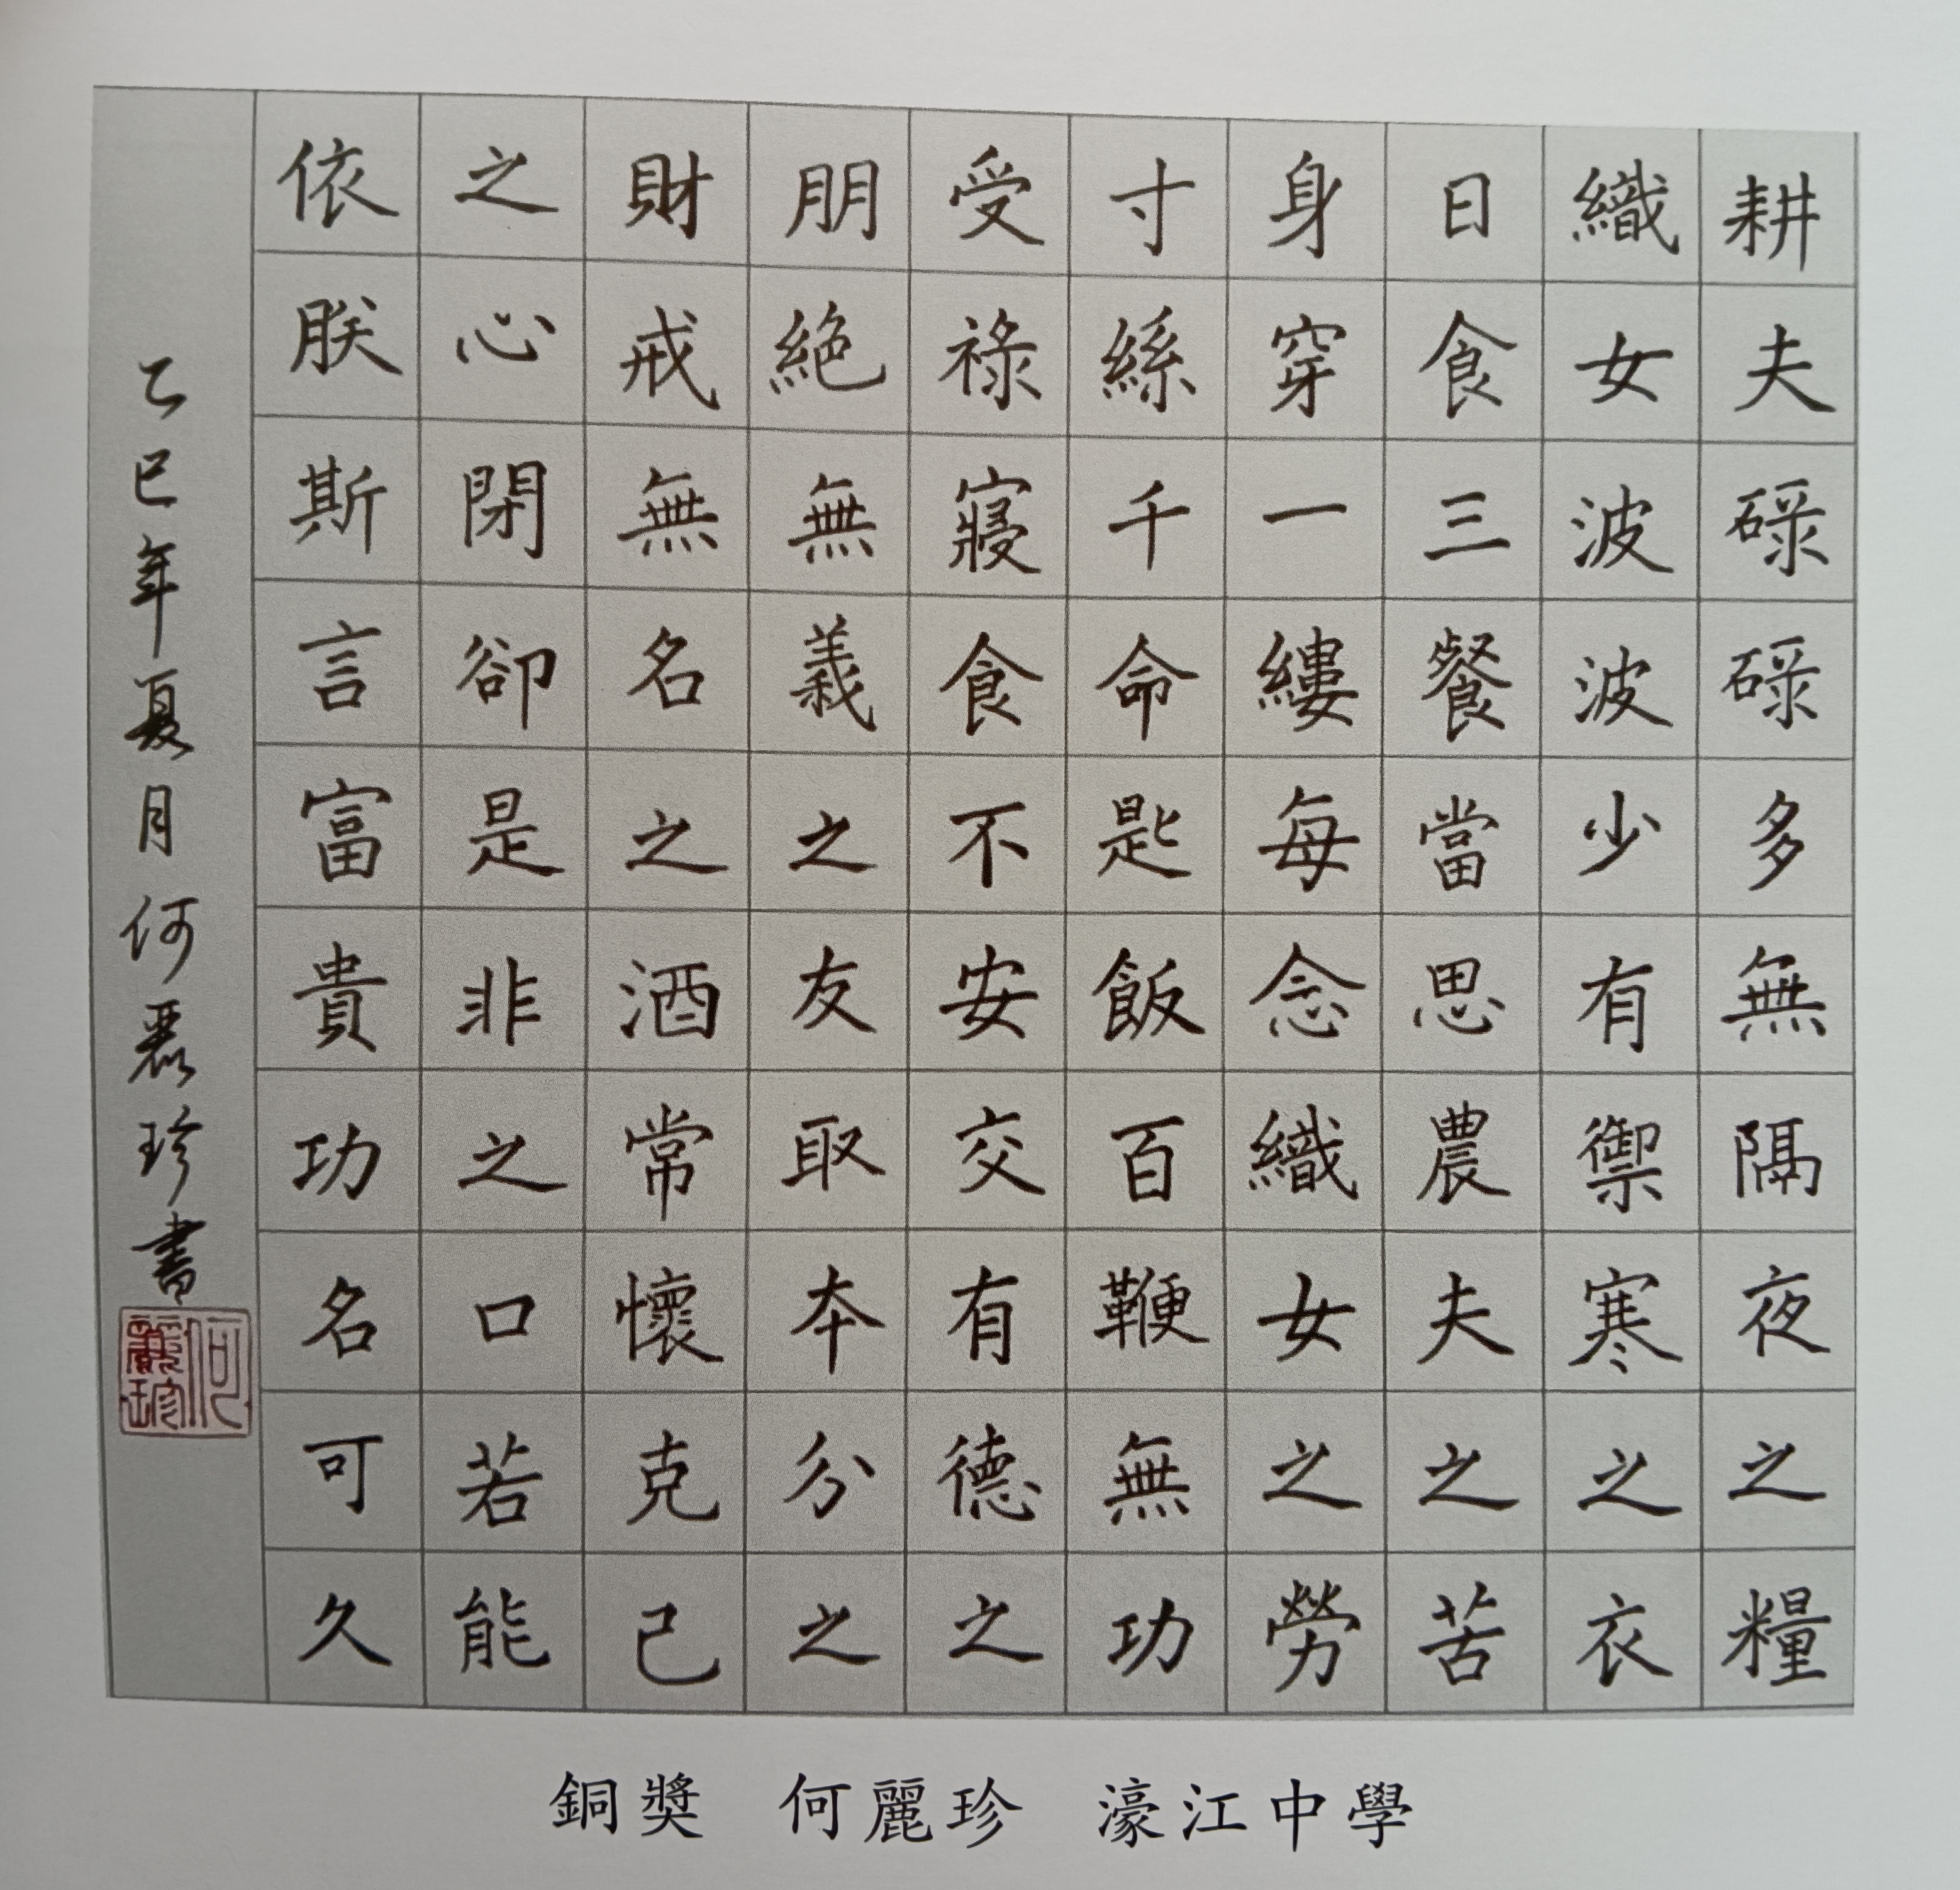 耕夫碌碌多無隔夜之糧
織女波波少有禦寒之衣
日食三餐當思農夫之苦
身穿一縷每念織女之勞
寸絲千命匙飯百鞭無功
受祿寢食不安交有德之
朋絕無義之友取本分之
財戒無名之酒常懷克己
之心閉卻是非之口若能
依朕斯言富貴功名可久
乙巳年夏月何麗珍書
何麗珍
銅獎 何麗珍 濠江中學